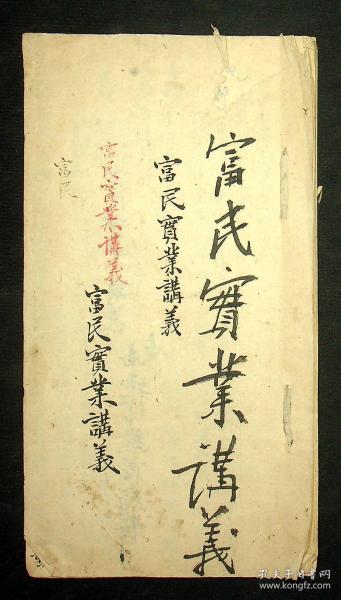 富民實業講義
富民實業講義
富民實業講義
富民實業講義
富民
孔夫子旧书网
www.kongfz.com